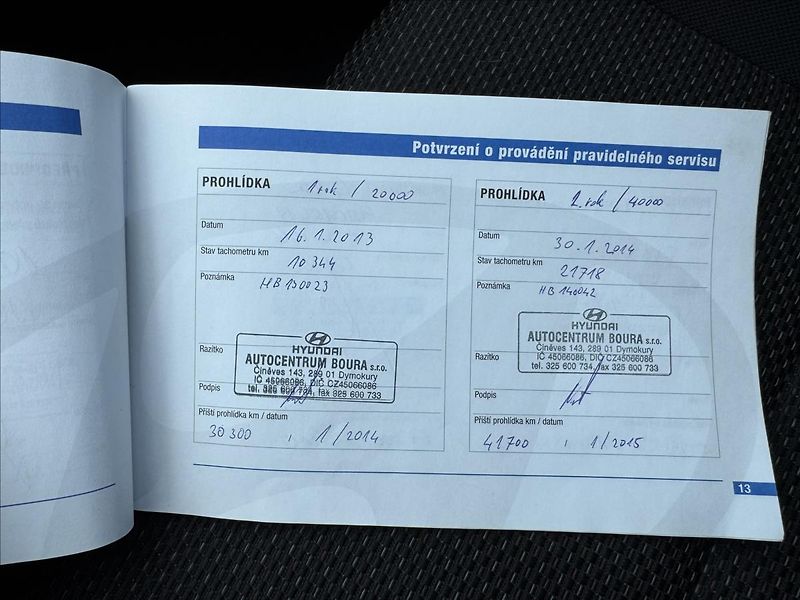 Potvrzení o provádění pravidelného servisu
PROHLÍDKA 1 rok / 20000
Datum 16.1.2013
Stav tachometru km 10 344
Poznámka HB 130023
Razítko
HYUNDAI
AUTOCENTRUM BOURA s.r.o.
Činěves 143, 289 01 Dymokury
IČ 45066086, DIČ CZ45066086
tel. 325 600 734, fax 325 600 733
Podpis
Příští prohlídka km / datum
30 300 , 1/2014
PROHLÍDKA 2. rok / 40000
Datum 30.1.2014
Stav tachometru km 21718
Poznámka HB 140042
Razítko
HYUNDAI
AUTOCENTRUM BOURA s.r.o.
Činěves 143, 289 01 Dymokury
IČ 45066086, DIČ CZ45066086
tel. 325 600 734, fax 325 600 733
Podpis
Příští prohlídka km / datum
41700 , 1/2015
13